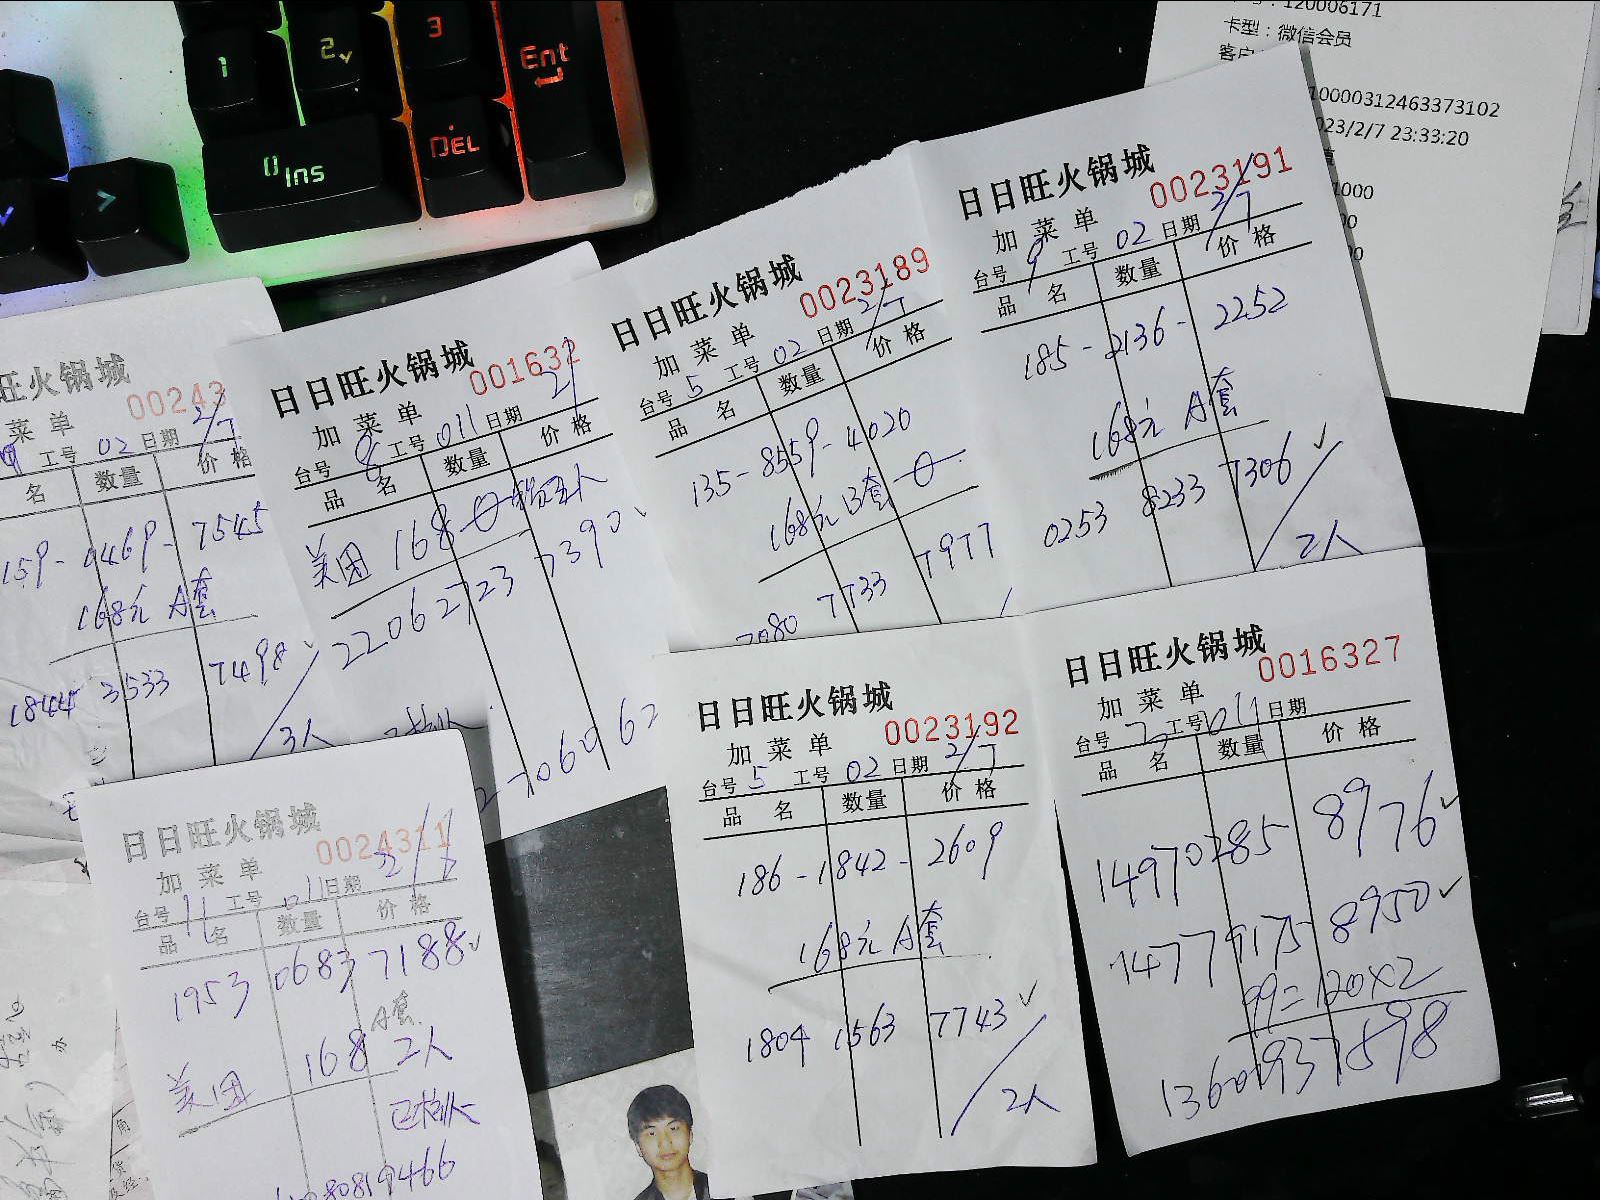 1
2
3
Ent
0
Ins
DEL
120006171
卡型：微信会员
10000312463373102
023/2/7 23:33:20
1000
00
日日旺火锅城
0023191
加菜单
台号 9 工号 02 日期 2/7
品名 数量 价格
185-2136-2252
168元 A套
0253 8233 7306 ✓
2人
日日旺火锅城
0023189
加菜单
台号 5 工号 02 日期 2/7
品名 数量 价格
135-8559-4020
168元B套
7733 7977
日日旺火锅城
001632
加菜单
台号 8 工号 011 日期 2/
品名 数量 价格
美团 168
22062723 7390
旺火锅城
00243
菜单
工号 02 日期 2/7
名 数量 价格
159-0469-7545
168元 A套
1844 3533 7498 ✓
3人
日日旺火锅城
0023192
加菜单
台号 5 工号 02 日期 2/7
品名 数量 价格
186-1842-2609
168元 A套
1804 1563 7743 ✓
2人
日日旺火锅城
0016327
加菜单
台号 工号 011 日期
品名 数量 价格
14970285 8976 ✓
14779175 8950 ✓
99=120×2
13601937598
日日旺火锅城
0024311
加菜单
台号 11 工号 011 日期
品名 数量 价格
1953 0683 7188 ✓
A套
美团 168 2人
80819466